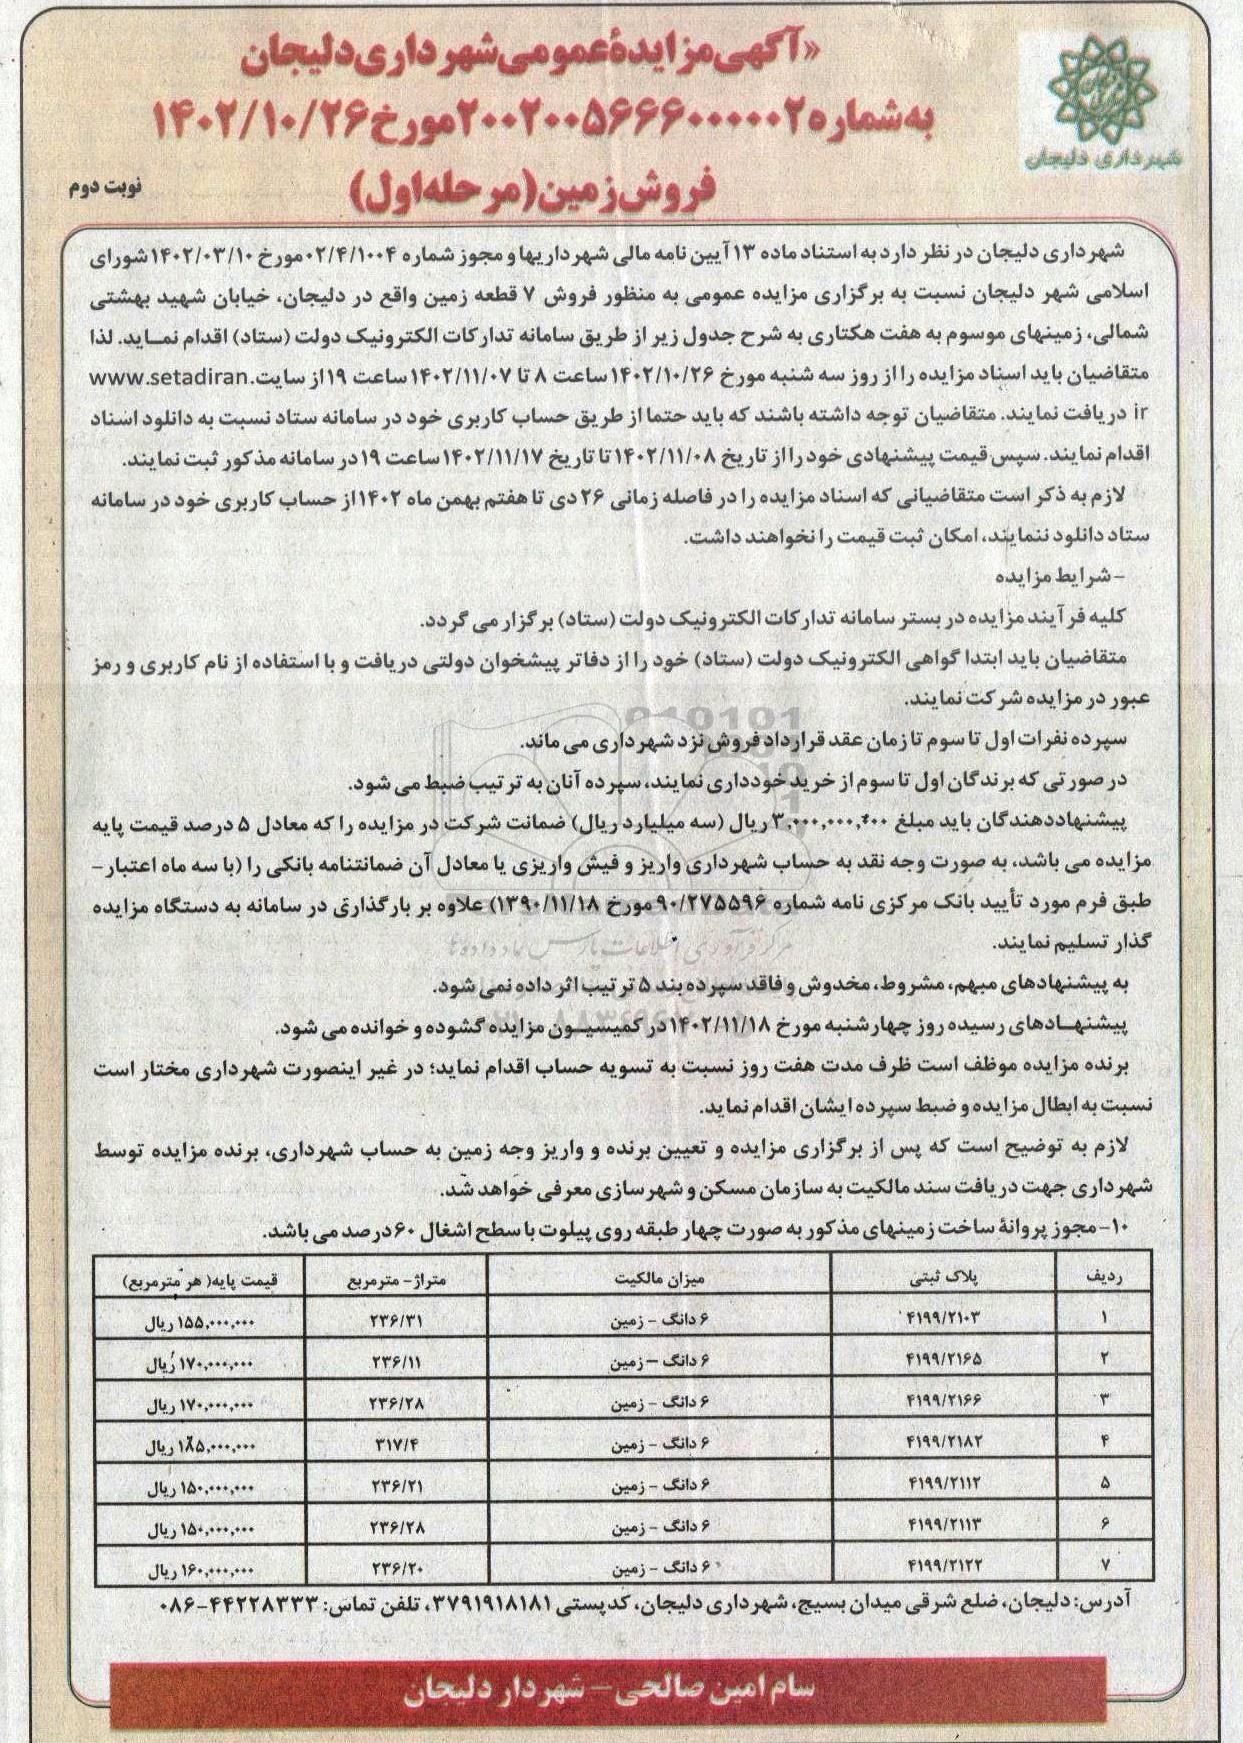 «آگهی مزایدۀ عمومی شهرداری دلیجان
به شماره ۲۰۰۲۰۰۵۶۶۶۰۰۰۰۰۲ مورخ ۱۴۰۲/۱۰/۲۶
فروش زمین (مرحله اول)
شهرداری دلیجان
نوبت دوم
شهرداری دلیجان در نظر دارد به استناد ماده ۱۳ آیین نامه مالی شهرداریها و مجوز شماره ۰۲/۴/۱۰۰۴ مورخ ۱۴۰۲/۰۳/۱۰ شورای
اسلامی شهر دلیجان نسبت به برگزاری مزایده عمومی به منظور فروش ۷ قطعه زمین واقع در دلیجان، خیابان شهید بهشتی
شمالی، زمینهای موسوم به هفت هکتاری به شرح جدول زیر از طریق سامانه تدارکات الکترونیک دولت (ستاد) اقدام نمــاید. لذا
متقاضیان باید اسناد مزایده را از روز سه شنبه مورخ ۱۴۰۲/۱۰/۲۶ ساعت ۸ تا ۱۴۰۲/۱۱/۰۷ ساعت ۱۹ از سایت www.setadiran.
ir دریافت نمایند. متقاضیان توجه داشته باشند که باید حتما از طریق حساب کاربری خود در سامانه ستاد نسبت به دانلود اسناد
اقدام نمایند. سپس قیمت پیشنهادی خود را از تاریخ ۱۴۰۲/۱۱/۰۸ تا تاریخ ۱۴۰۲/۱۱/۱۷ ساعت ۱۹ در سامانه مذکور ثبت نمایند.
لازم به ذکر است متقاضیانی که اسناد مزایده را در فاصله زمانی ۲۶ دی تا هفتم بهمن ماه ۱۴۰۲ از حساب کاربری خود در سامانه
ستاد دانلود ننمایند، امکان ثبت قیمت را نخواهند داشت.
-شرایط مزایده
کلیه فرآیند مزایده در بستر سامانه تدارکات الکترونیک دولت (ستاد) برگزار می گردد.
متقاضیان باید ابتدا گواهی الکترونیک دولت (ستاد) خود را از دفاتر پیشخوان دولتی دریافت و با استفاده از نام کاربری و رمز
عبور در مزایده شرکت نمایند.
سپرده نفرات اول تا سوم تا زمان عقد قرارداد فروش نزد شهرداری می ماند.
در صورتی که برندگان اول تا سوم از خرید خودداری نمایند، سپرده آنان به ترتیب ضبط می شود.
پیشنهاددهندگان باید مبلغ ۳,۰۰۰,۰۰۰,۰۰۰ ریال (سه میلیارد ریال) ضمانت شرکت در مزایده را که معادل ۵ درصد قیمت پایه
مزایده می باشد، به صورت وجه نقد به حساب شهرداری واریز و فیش واریزی یا معادل آن ضمانتنامه بانکی را (با سه ماه اعتبار-
طبق فرم مورد تأیید بانک مرکزی نامه شماره ۹۰/۲۷۵۵۹۶ مورخ ۱۳۹۰/۱۱/۱۸) علاوه بر بارگذاری در سامانه به دستگاه مزایده
گذار تسلیم نمایند.
به پیشنهادهای مبهم، مشروط، مخدوش و فاقد سپرده بند ۵ ترتیب اثر داده نمی شود.
پیشنهــادهای رسیده روز چهارشنبه مورخ ۱۴۰۲/۱۱/۱۸ در کمیسیــون مزایده گشوده و خوانده می شود.
برنده مزایده موظف است ظرف مدت هفت روز نسبت به تسویه حساب اقدام نماید؛ در غیر اینصورت شهرداری مختار است
نسبت به ابطال مزایده و ضبط سپرده ایشان اقدام نماید.
لازم به توضیح است که پس از برگزاری مزایده و تعیین برنده و واریز وجه زمین به حساب شهرداری، برنده مزایده توسط
شهرداری جهت دریافت سند مالکیت به سازمان مسکن و شهرسازی معرفی خواهد شد.
۱۰-مجوز پروانۀ ساخت زمینهای مذکور به صورت چهار طبقه روی پیلوت با سطح اشغال ۶۰ درصد می باشد.
ردیف پلاک ثبتی میزان مالکیت متراژ- مترمربع قیمت پایه( هر مترمربع)
۱ ۴۱۹۹/۲۱۰۳ ۶ دانگ - زمین ۲۳۶/۳۱ ۱۵۵,۰۰۰,۰۰۰ ریال
۲ ۴۱۹۹/۲۱۶۵ ۶ دانگ - زمین ۲۳۶/۱۱ ۱۷۰,۰۰۰,۰۰۰ ریال
۳ ۴۱۹۹/۲۱۶۶ ۶ دانگ - زمین ۲۳۶/۲۸ ۱۷۰,۰۰۰,۰۰۰ ریال
۴ ۴۱۹۹/۲۱۸۲ ۶ دانگ - زمین ۳۱۷/۴ ۱۸۵,۰۰۰,۰۰۰ ریال
۵ ۴۱۹۹/۲۱۱۲ ۶ دانگ - زمین ۲۳۶/۲۱ ۱۵۰,۰۰۰,۰۰۰ ریال
۶ ۴۱۹۹/۲۱۱۳ ۶ دانگ - زمین ۲۳۶/۲۸ ۱۵۰,۰۰۰,۰۰۰ ریال
۷ ۴۱۹۹/۲۱۲۲ ۶ دانگ - زمین ۲۳۶/۲۰ ۱۶۰,۰۰۰,۰۰۰ ریال
آدرس: دلیجان، ضلع شرقی میدان بسیج، شهرداری دلیجان، کدپستی ۳۷۹۱۹۱۸۱۸۱، تلفن تماس: ۴۴۲۲۸۳۳۳-۰۸۶
سام امین صالحی – شهردار دلیجان